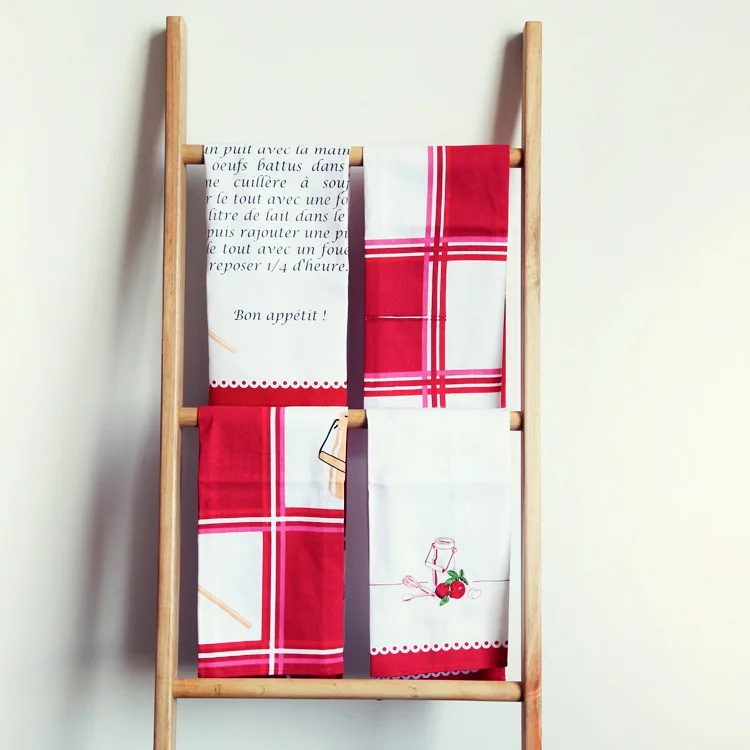 un puit avec la main
oeufs battus dans
cuillère à
r le tout avec une
litre de lait dans le
puis rajouter une
le tout avec un
reposer 1/4 d'heure.
Bon appétit !